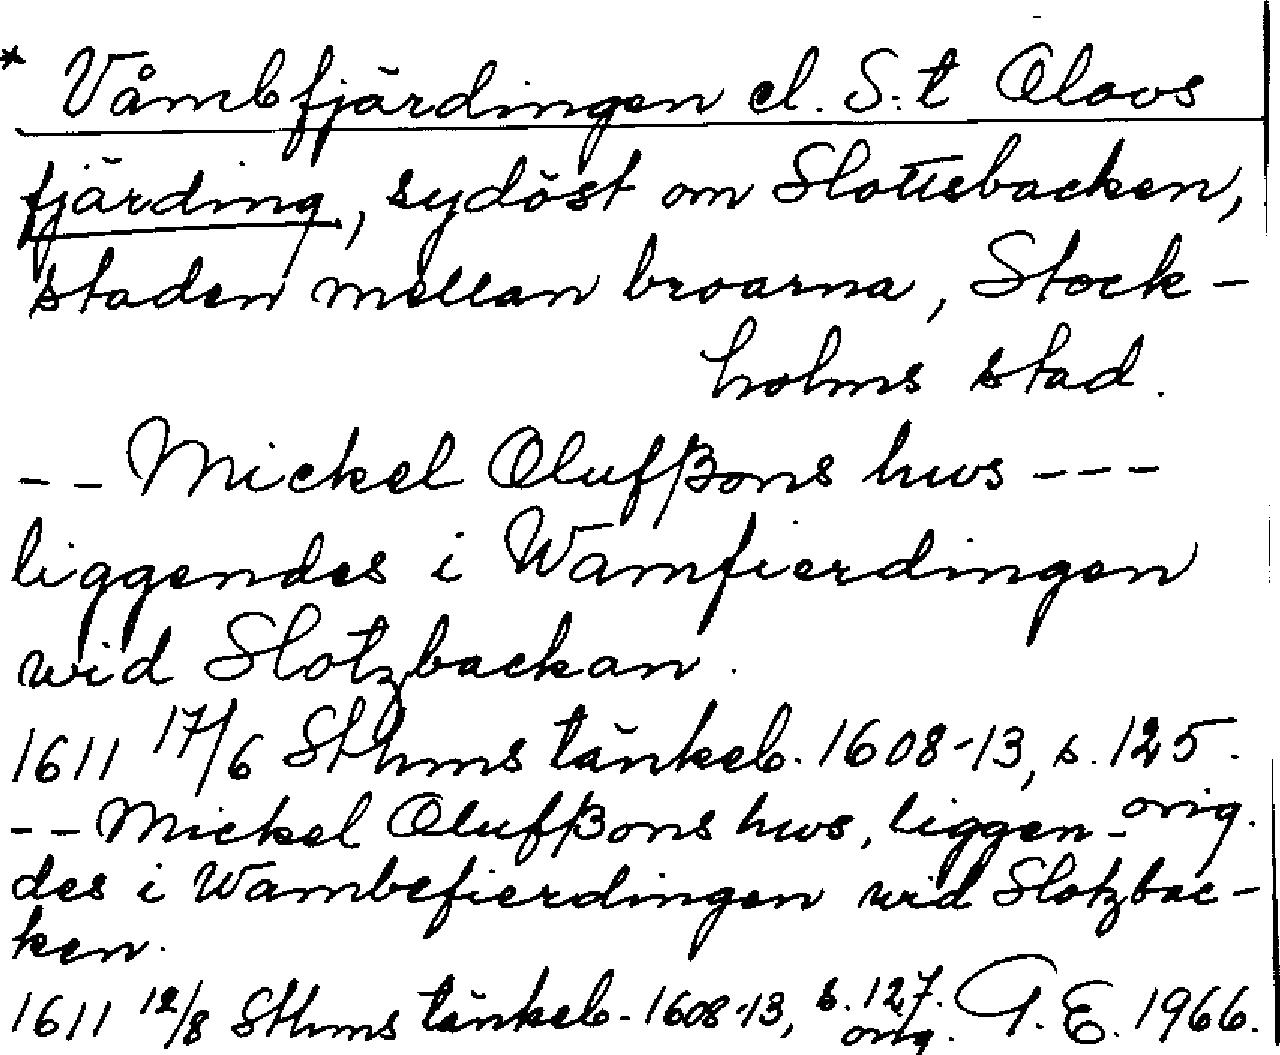 * Våmbfjärdingen el. S:t Olovs
fjärding, sydöst om Slottsbacken,
staden mellan broarna, Stock-
holms stad.
-- Mickel Olufßons hws ---
liggendes i Wamfierdingen
wid Slotzbackan.
1611 17/6 Sthms tänkeb. 1608-13, s. 125.
orig.
-- Mickel Olufßons hws, liggen-
des i Wambefierdingen wid Slotzbac-
ken.
1611 12/8 Sthms tänkeb. 1608-13, s. 127. G. E. 1966.
orig.